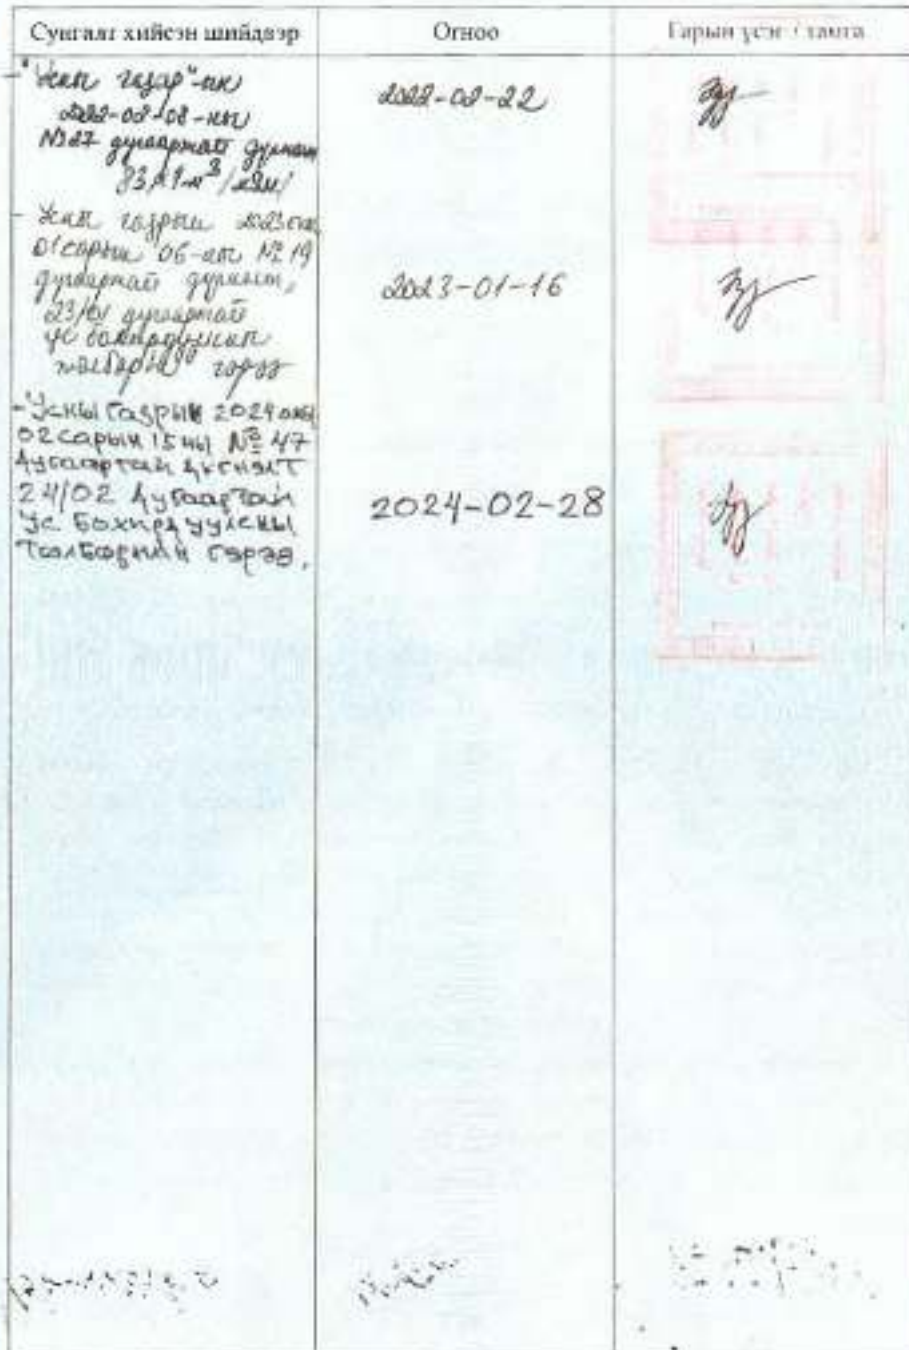 Сунгалт хийсэн шийдвэр
Огноо
Гарын үсэг / тамга
-"Усны газар"-ын
2022-02-08-ны
№27 дугаартай дүгнэлт
2022-02-22
- Усны газрын 2023 оны
01 сарын 06-ны № 19
дугаартай дүгнэлт,
23/01 дугаартай
ус бохирдуулсны
төлбөрийн гэрээ
2023-01-16
-Усны газрын 2024 оны
02 сарын 15 ны № 47
дугаартай дүгнэлт
24/02 дугаартай
Ус бохирдуулсны
Төлбөрийн гэрээ.
2024-02-28